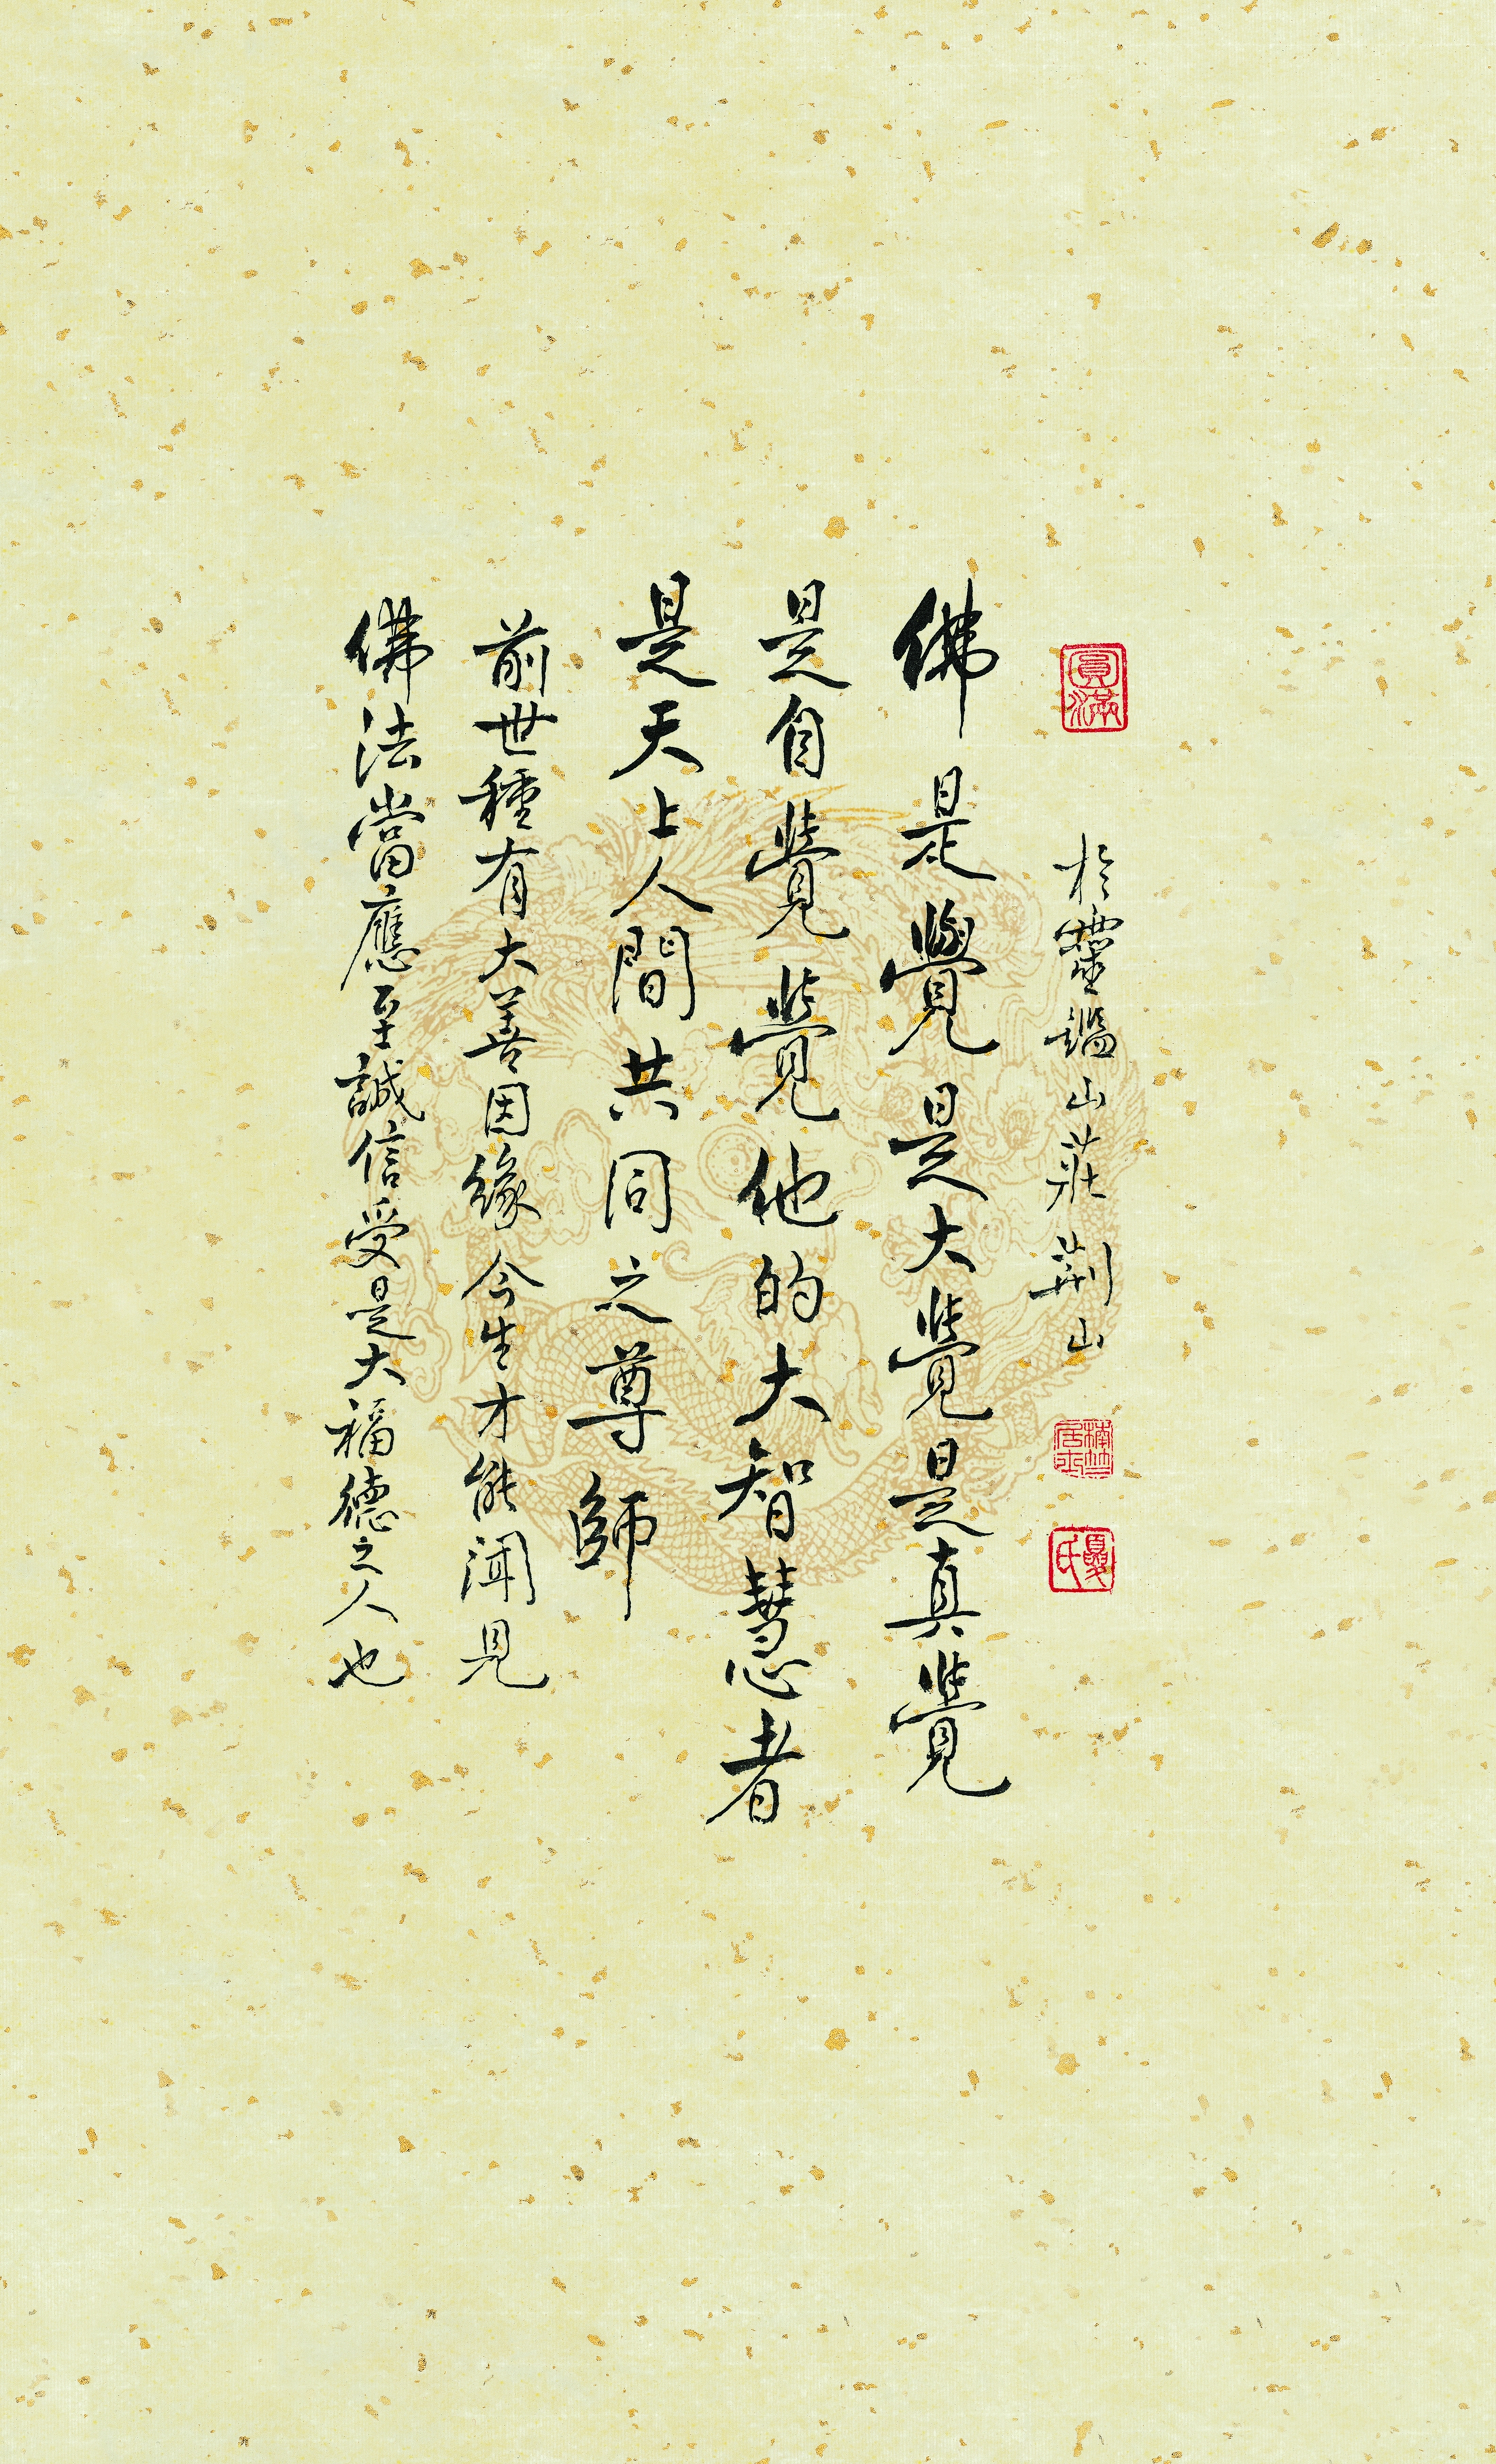 圓滿
於靈鑑山莊荊山
夏氏
佛是覺是大覺是真覺
是自覺覺他的大智慧者
是天上人間共同之尊師
前世種有大善因緣今生才能聞見
佛法當應至誠信受是大福德之人也